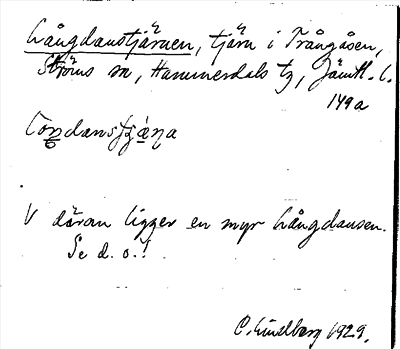 Långdanstjärnen, tjärn i Trångåsen,
Ströms sn, Hammerdals tg, Jämtl. l.
149a
V däran ligger en myr Långdansen.
Se d. o.!
C. Lindberg 1929.